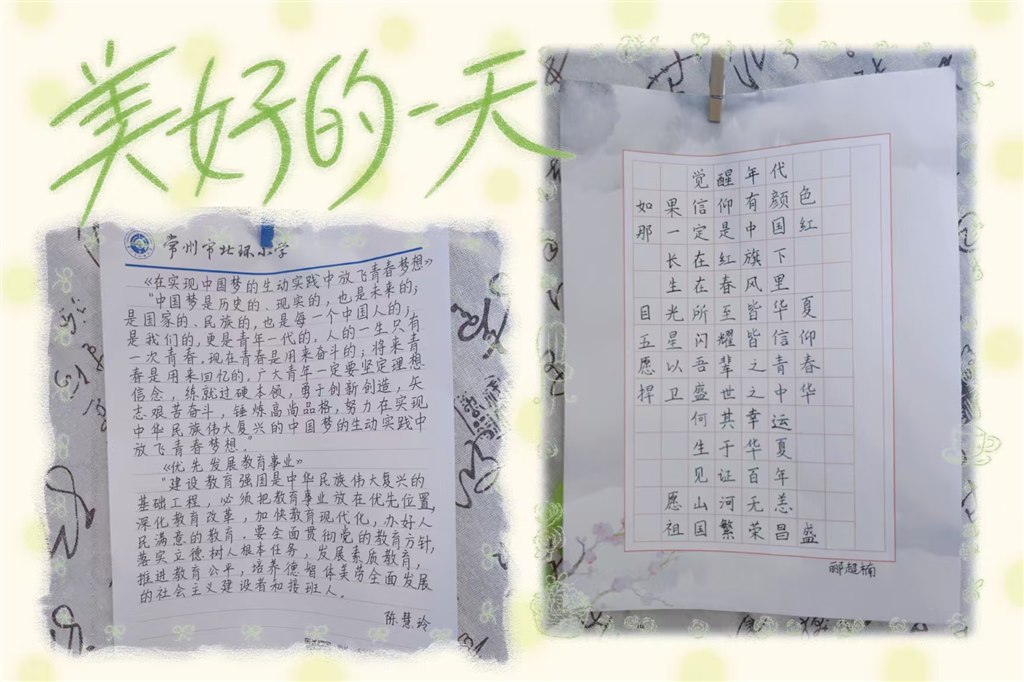 美好的一天
常州市北环小学
《在实现中国梦的生动实践中放飞青春梦想》
"中国梦是历史的、现实的，也是未来的；
是国家的、民族的，也是每一个中国人的；
是我们的，更是青年一代的。人的一生只有
一次青春。现在青春是用来奋斗的；将来青
春是用来回忆的。广大青年一定要坚定理想
信念，练就过硬本领，勇于创新创造，矢
志艰苦奋斗，锤炼高尚品格，努力在实现
中华民族伟大复兴的中国梦的生动实践中
放飞青春梦想。"
《优先发展教育事业》
"建设教育强国是中华民族伟大复兴的
基础工程，必须把教育事业放在优先位置，
深化教育改革，加快教育现代化，办好人
民满意的教育。要全面贯彻党的教育方针，
落实立德树人根本任务，发展素质教育，
推进教育公平，培养德智体美劳全面发展
的社会主义建设者和接班人。
陈慧玲
觉醒年代
如果信仰有颜色
那一定是中国红
长在红旗下
生在春风里
目光所至皆华夏
五星闪耀皆信仰
愿以吾辈之青春
捍卫盛世之中华
何其幸运
生于华夏
见证百年
愿山河无恙
祖国繁荣昌盛
郦超楠